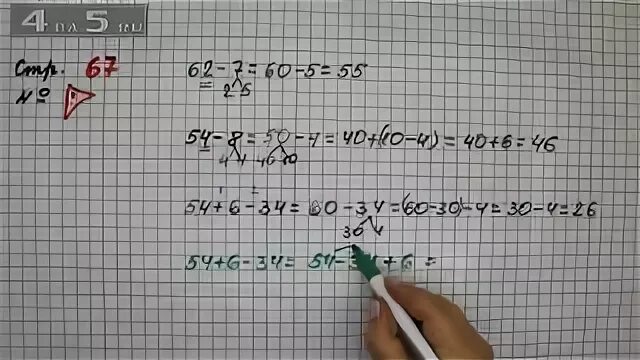 4 на 5 тв
Стр. 67
№
62 - 7 = 60 - 5 = 55
2 5
54 - 8 = 50 - 4 = 40 + (10 - 4) = 40 + 6 = 46
4 4 40 10
54 + 6 - 34 = 60 - 34 = (60 - 30) - 4 = 30 - 4 = 26
30 4
54 + 6 - 34 = 54 - 34 + 6 =